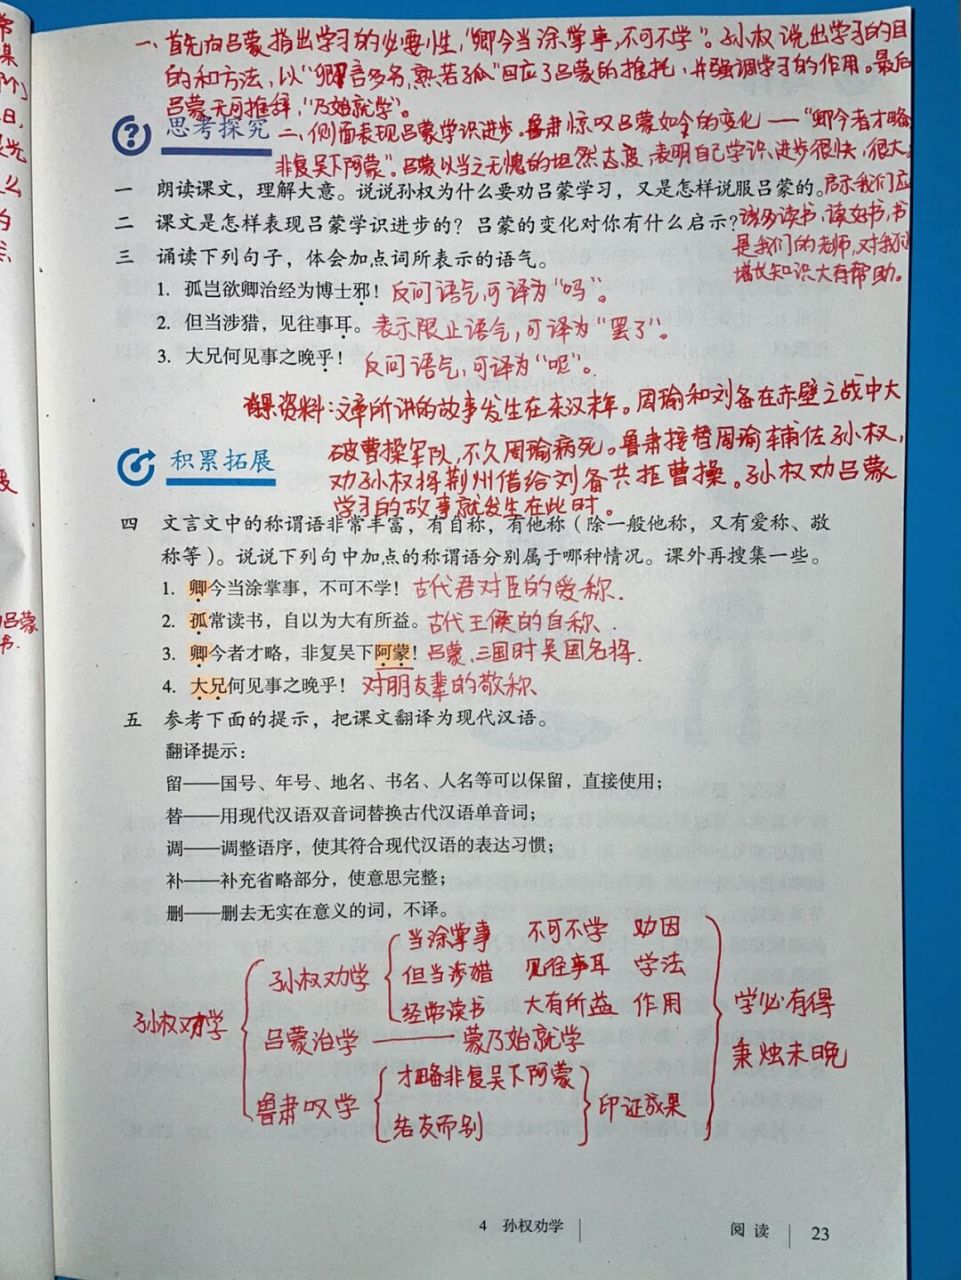 一、首先向吕蒙指出学习的必要性,"卿今当涂掌事,不可不学"。孙权说出学习的目
的和方法,以"卿言多务,孰若孤"回应了吕蒙的推托,并强调学习的作用。最后
吕蒙无可推辞,"乃始就学"。
思考探究
二、侧面表现吕蒙学识进步。鲁肃惊叹吕蒙如今的变化——"卿今者才略
非复吴下阿蒙"。吕蒙以当之无愧的坦然态度,表明自己学识进步很快,很大。
一 朗读课文,理解大意。说说孙权为什么要劝吕蒙学习,又是怎样说服吕蒙的。
启示我们应
二 课文是怎样表现吕蒙学识进步的?吕蒙的变化对你有什么启示?
该多读书,读好书,书
是我们的老师,对我们
增长知识大有帮助。
三 诵读下列句子,体会加点词所表示的语气。
1. 孤岂欲卿治经为博士邪!反问语气,可译为"吗"。
2. 但当涉猎,见往事耳。表示限止语气,可译为"罢了"。
3. 大兄何见事之晚乎!反问语气,可译为"呢"。
背景资料:文章所讲的故事发生在东汉末年。周瑜和刘备在赤壁之战中大
破曹操军队,不久周瑜病死。鲁肃接替周瑜辅佐孙权,
劝孙权将荆州借给刘备共拒曹操。孙权劝吕蒙
学习的故事就发生在此时。
积累拓展
四 文言文中的称谓语非常丰富,有自称,有他称(除一般他称,又有爱称、敬
称等)。说说下列句中加点的称谓语分别属于哪种情况。课外再搜集一些。
1. 卿今当涂掌事,不可不学!古代君对臣的爱称.
2. 孤常读书,自以为大有所益。古代王侯的自称.
3. 卿今者才略,非复吴下阿蒙!吕蒙,三国时吴国名将.
4. 大兄何见事之晚乎!对朋友辈的敬称
五 参考下面的提示,把课文翻译为现代汉语。
翻译提示:
留——国号、年号、地名、书名、人名等可以保留,直接使用;
替——用现代汉语双音词替换古代汉语单音词;
调——调整语序,使其符合现代汉语的表达习惯;
补——补充省略部分,使意思完整;
删——删去无实在意义的词,不译。
孙权劝学
孙权劝学
当涂掌事 不可不学 劝因
但当涉猎 见往事耳 学法
经常读书 大有所益 作用
吕蒙治学——蒙乃始就学
鲁肃叹学
才略非复吴下阿蒙
结友而别
印证效果
学必有得
秉烛未晚
4 孙权劝学
阅读 23